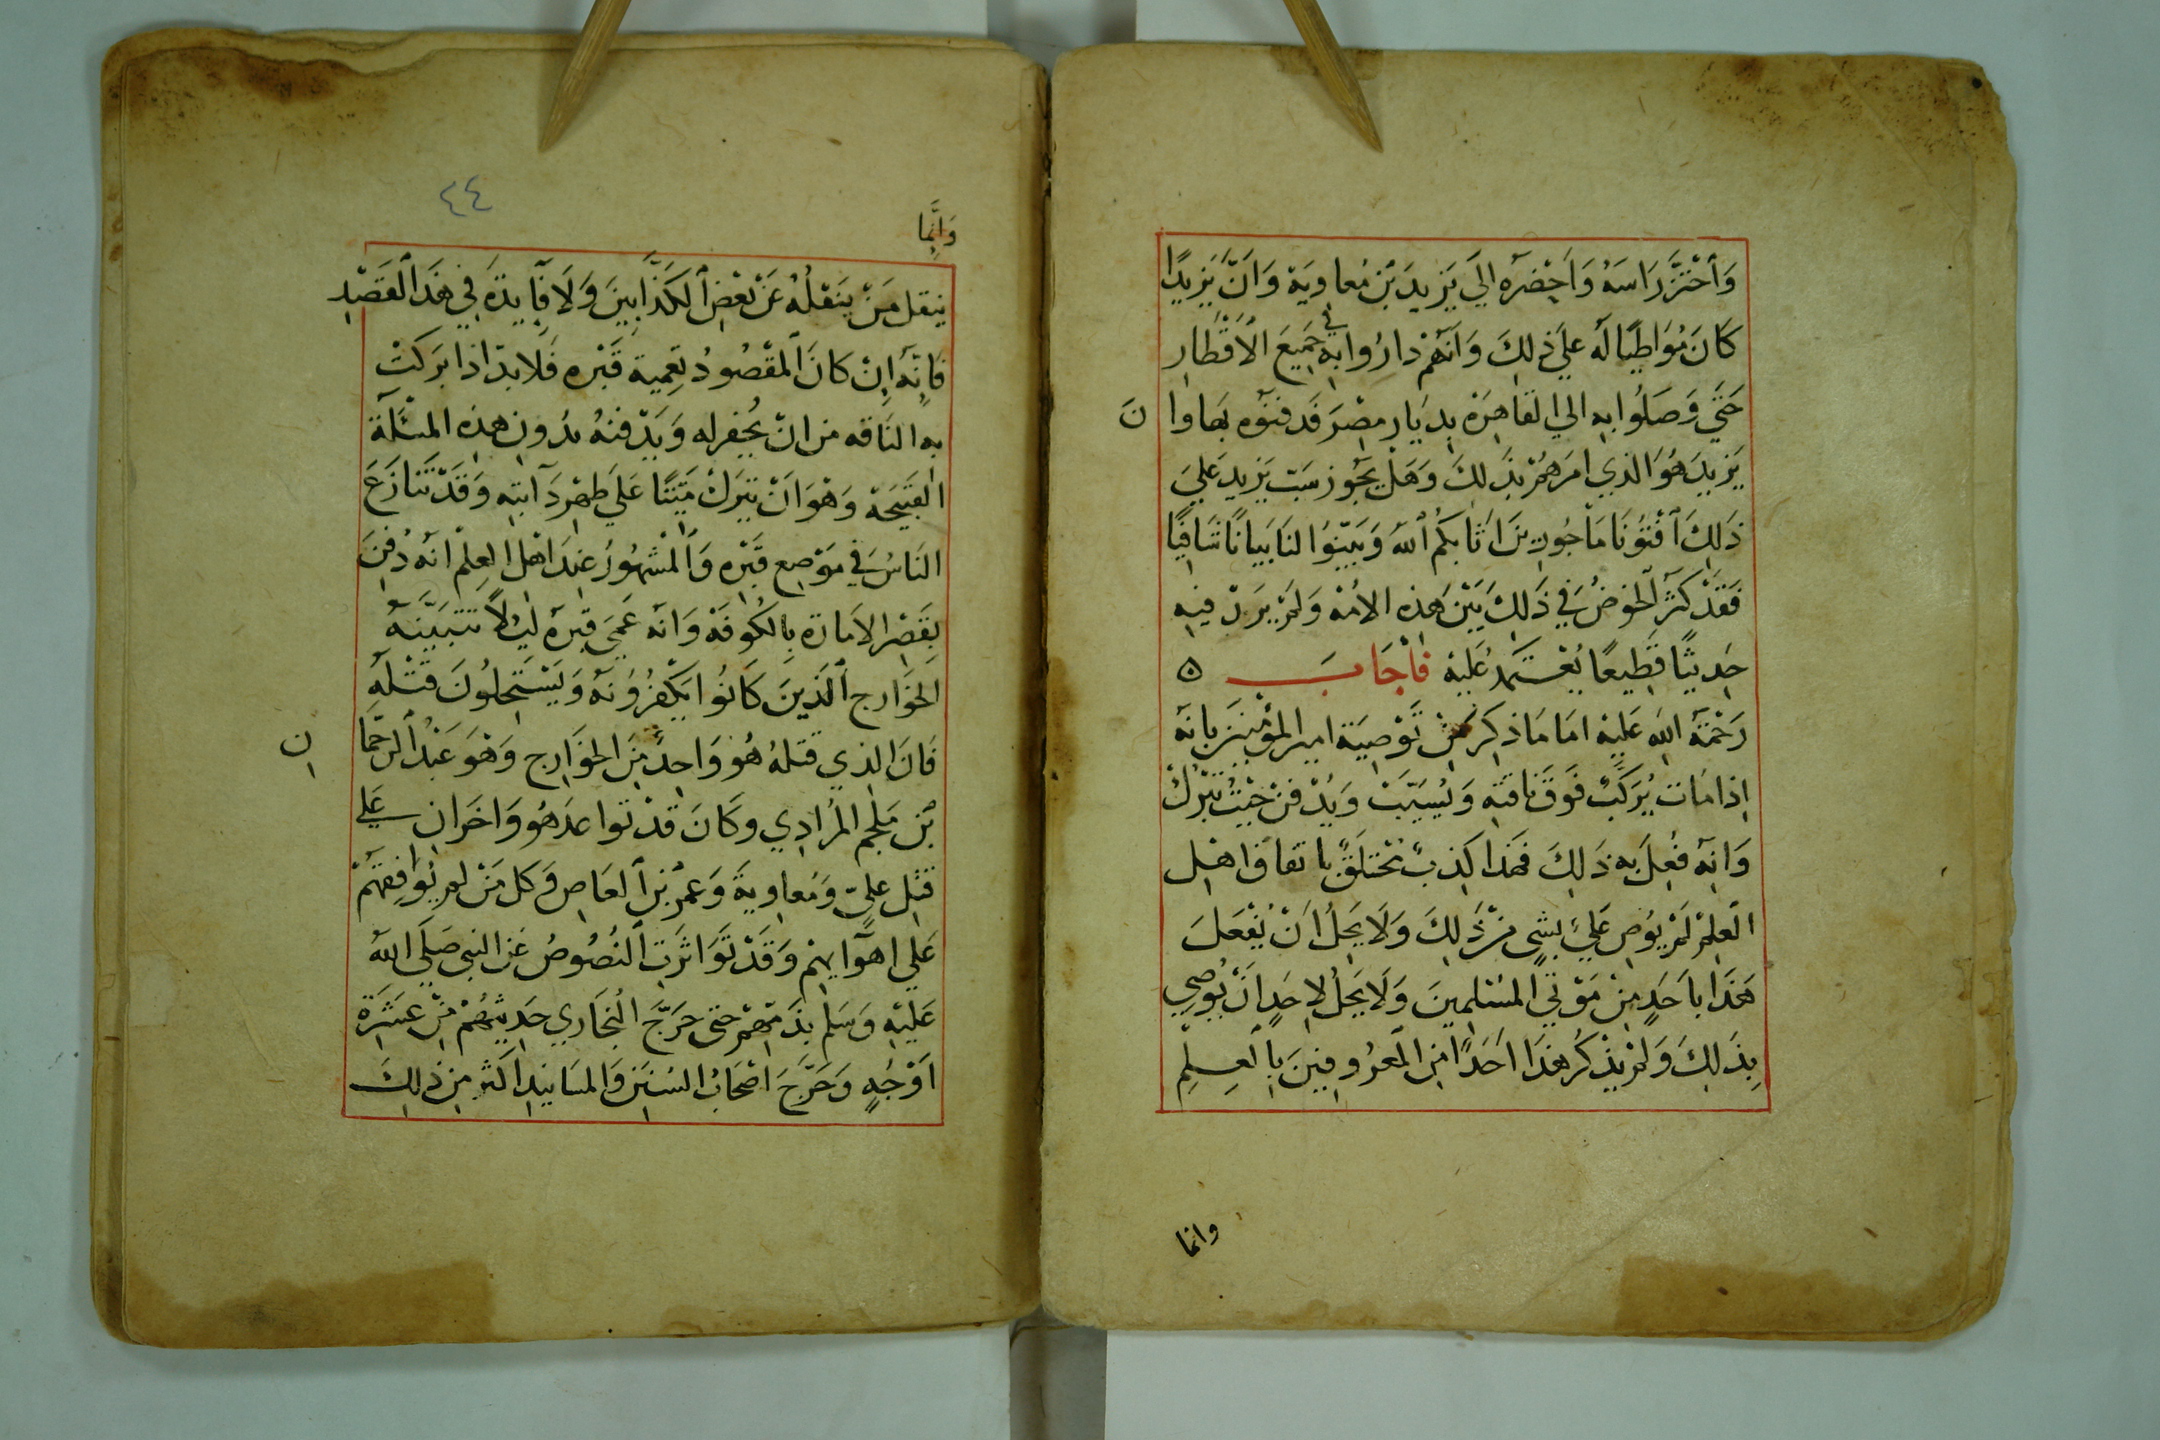 وَاحْتَزَّ رَاسَهُ وَاَحْضَرَه اِلَي يَزِيدَ بْنِ مُعاوِيَة وَاَنَّ يَزِيدًا
كَانَ مُوَاطِيًا لَه عَلَي ذٰلِكَ وَاَنَّهُمْ دارُوا بِه في جَمِيعَ الاَقْطَارِ
حَتَّي وَصَلُوا بِهِ الي القَاهِرَة بِدِيَارِ مِصْرَ فَدفنوه بِهَا وا
نَ
يَزِيدَ هُوَ الذي امَرهُمْ بذَلكَ وَهَلْ يَجُوز سَبّ يَزِيدَ عَلَيَ
ذَلِكَ اَفْتُونَا مَاْجُورِينَ اَثَابَكُمُ اللَّه وَبَيِّنُوا لنَا بَيانًا شَافِيًا
فَقَدْ كَثُرَ الخَوضُ في ذَلِكَ بَيْنَ هَذِه الامُّة وَلَمْ يَرِدْ فيهِ
حَدِيثًا قَطِيعًا يُعْتَمَدُ عَليْه فاَجَابَ ه
رَحْمَةُ اللهِ عَلَيْهِ امَا مَا ذكِرَ مِنْ تَوْصِيَة امير المؤْمنِينَ بِانه
اِذا مَات يُرَكَّبُ فَوْقَ نَاقتِه وَيُسَيَّبُ وَيُدْفَنُ حَيْثُ تَبْرُكْ
وَانه فُعِلَ بِه ذَلِكَ فَهَذا كَذِبٌ مُخْتَلَقٌ باتفاق اهْلِ
العِلمْ لَمْ يُوصِ عَلِيّ بِشيٍ مِنْ ذَلِكَ وَلَا يَحِلُّ اَنْ يُفْعَلَ
هَذَا باَحَدٍ مِنْ مَوْتَي المُسْلِمينَ وَلَا يَحِلُّ لِاحَدٍ اَنْ يُوصِي
بِذَلِكَ وَلَمْ يَذْكُر هَذَا اَحَدًا مِنَ المَعرُوفِينَ بِالْعِلمِ
وانما
٤٤
وَانَّما
ينقل مَنْ يَنقلُهُ عَنْ بَعْضِ الكَذَّابِينَ وَلَا فَآيِدَة فِي هَذَا القَصْدِ
فَاِنّه اِنْ كانَ المقْصُودُ تعمِية قَبْرِه فَلا بدّ اذا بَركتْ
بِه الناقه من انْ يُحْفر له وَيَدْفنهُ بدُونِ هذِه المُثْلَة
القَبِيحَة وَهْوَ اَنْ يَترك مَيّتًا عَلَي ظهْر دَآبتِه وَقَدْ تَنَازَعَ
النَاسُ في مَوْضِع قَبْرِه وَالمْشهُورُ عِندَ اهْلِ العِلْم انه دُفِنَ
بِقَصْرِ الاَمَارة بِالكُوفَة وَانه عَمّيَ قبره لِيلاَّ تتبيَّنه
الخَوَارج الَّذينَ كَانوُا يكفرُونهُ وَيَسْتَحِلونَ قَتْلَه
فَانَّ الذي قتلهُ هُوَ وَاحِدٌ مِنَ الخوَارِج وَهْوَ عَبْدُ الرحما
ن
بْن مُلْجم المُرَادِي وَكَانَ قدْ تواعدَ هُو وَاخَرانِ علي
قَتْل علىٍّ وَمُعاوِيةَ وَعمْرُ بن العَاصِ وَكل مَنْ لم يُوَافِقهُمْ
عَلي اهوَآيِهم وَقَدْ تَوَاتَرَت النُصُوصُ عَن النبي صَلّي اللهُ
عَليْهِ وَسَلم بِذَمّهم حتى خرّجَ البُخَاري حَدِيثهُمْ مِنْ عَشَرَة
اَوْجُهٍ وَخَرَّجَ اصْحَابُ السُننِ وَالمَسَانِيد اكثر مِن ذَلِكَ